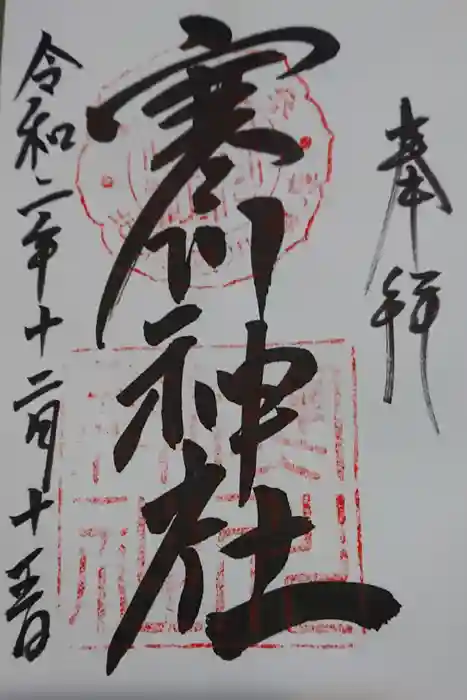 奉拝
寒川神社
令和二年十二月十五日